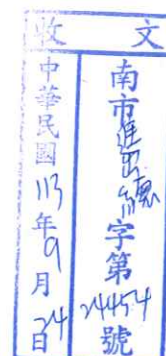 收文
南市進出總字第24454號
中華民國113年9月24日